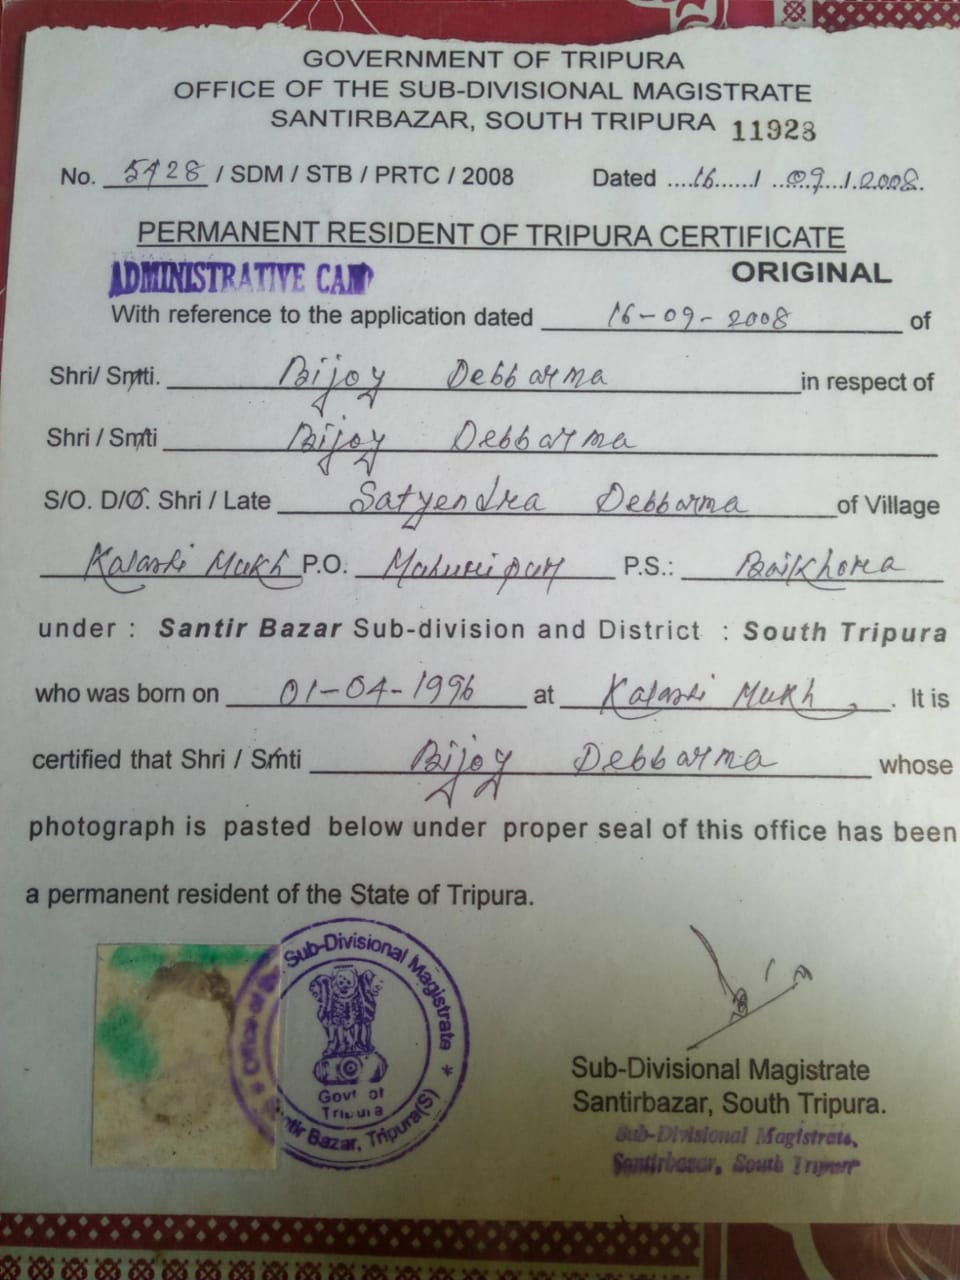 GOVERNMENT OF TRIPURA
OFFICE OF THE SUB-DIVISIONAL MAGISTRATE
SANTIRBAZAR, SOUTH TRIPURA 11928
No. 5428 / SDM / STB / PRTC / 2008 Dated ....16....../ ...09.../.2008.
PERMANENT RESIDENT OF TRIPURA CERTIFICATE
ADMINISTRATIVE CAMP ORIGINAL
With reference to the application dated 16-09-2008 of
Shri/ Smti. Bijoy Debbarma in respect of
Shri / Smti Bijoy Debbarma
S/O. D/O. Shri / Late Satyendra Debbarma of Village
Kalashi Mukh P.O. Muhuripur P.S.: Baikhora
under : Santir Bazar Sub-division and District : South Tripura
who was born on 01-04-1996 at Kalashi Mukh. It is
certified that Shri / Smti Bijoy Debbarma whose
photograph is pasted below under proper seal of this office has been
a permanent resident of the State of Tripura.
Office of the Sub-Divisional Magistrate *
Govt of
Tripura
Santir Bazar, Tripura(S)
Sub-Divisional Magistrate
Santirbazar, South Tripura.
Sub-Divisional Magistrate,
Santirbazar, South Tripura